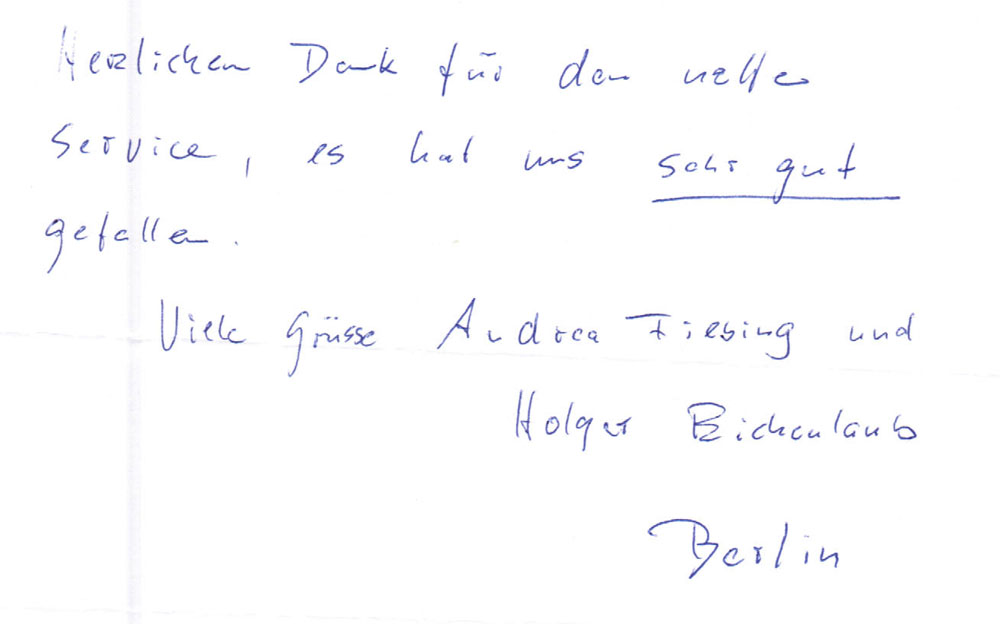 Herzlichen Dank für den netten
Service, es hat uns sehr gut
gefallen.
Viele Grüsse Andrea Fiebing und
Holger
Berlin